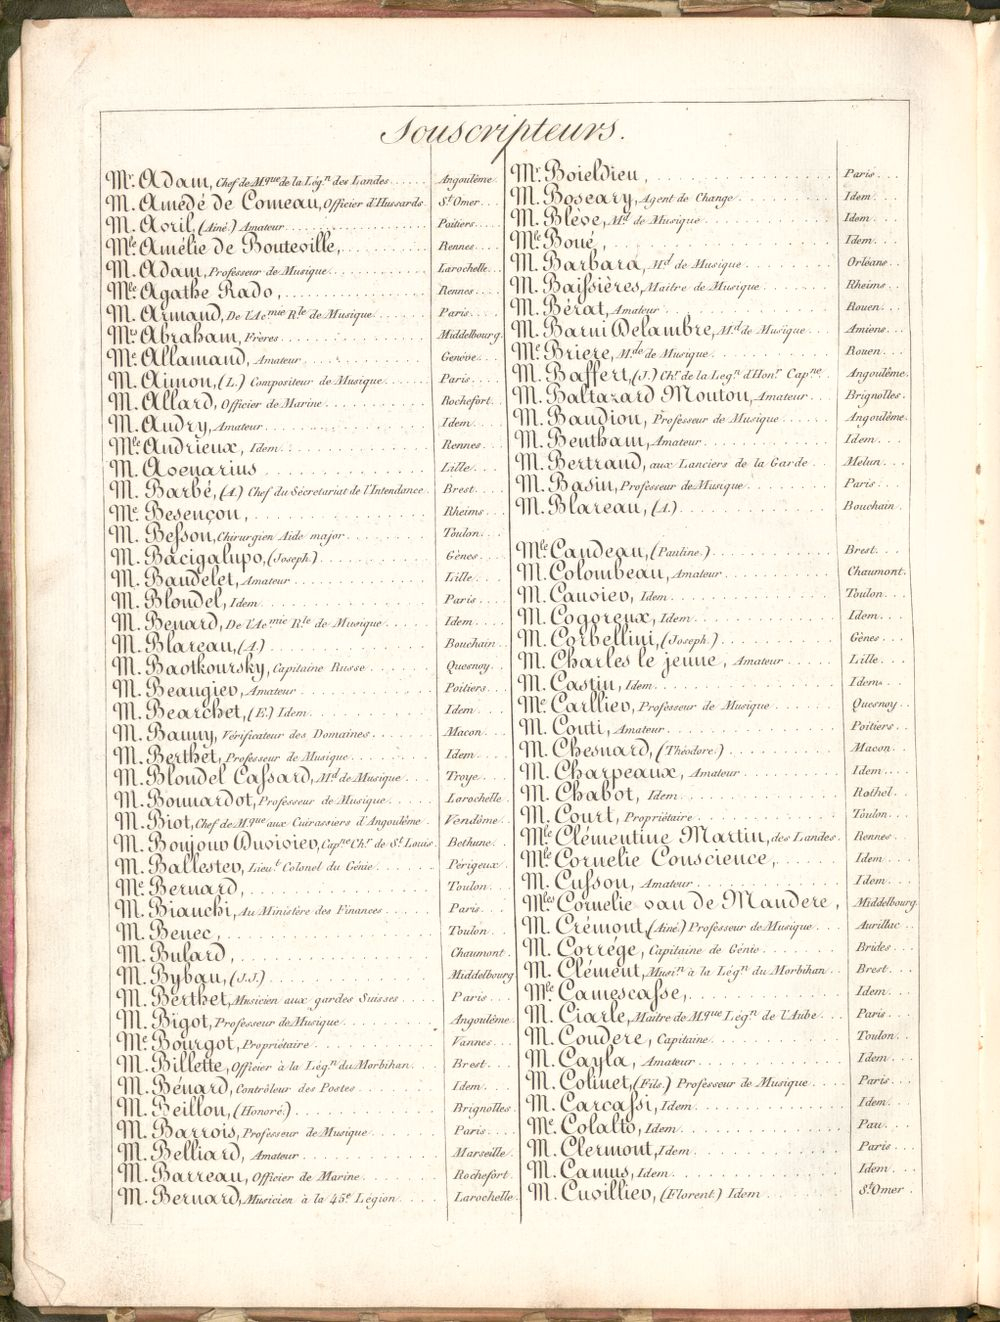 Souscripteurs.
Mr. Adam, Chef de M.que de la Lég.n des Landes..... Angoulême.
M. Amédé de Comeau, Officier d'Hussards St Omer...
M. Avril, (Ainé.) Amateur............... Poitiers...
Mlle Amélie de Bouteville,......... Rennes...
M. Adam, Professeur de Musique.......... Larochelle...
Mlle Agathe Rado,............... Rennes...
M. Armand, De l'Ac.mie R.le de Musique...... Paris....
Mrs Abraham, Frères............... Middelbourg.
Me. Allamand, Amateur............. Genève...
M. Aimon, (L.) Compositeur de Musique...... Paris....
M. Allard, Officier de Marine........... Rochefort..
M. Audry, Amateur................. Idem....
Mlle Andrieux, Idem............... Rennes...
M. Avenarius................... Lille....
M. Barbé, (A.) Chef du Sécretariat de l'Intendance. Brest....
Me. Besençon,................. Rheims...
M. Besson, Chirurgien Aide major......... Toulon...
M. Bacigalupo, (Joseph.)............ Gènes....
M. Baudelet, Amateur.............. Lille....
M. Blondel, Idem................. Paris....
M. Benard, De l'Ac.mie R.le de Musique..... Idem....
M. Blareau, (A.)................ Bouchain..
M. Baotkoursky, Capitaine Russe....... Quesnoy..
M. Beaugiev, Amateur............. Poitiers...
M. Bearchet, (E.) Idem............. Idem....
M. Bauny, Vérificateur des Domaines...... Macon...
M. Berthet, Professeur de Musique........ Idem....
M. Blondel Cassard, M.d de Musique..... Troye....
M. Bounardot, Professeur de Musique...... Larochelle.
M. Biot, Chef de M.que aux Cuirassiers d'Angoulême. Vendôme..
M. Boujouv Duviviev, Cap.ne Ch.r de St Louis. Bethune..
M. Ballestev, Lieu.t Colonel du Génie...... Périgeux..
Me. Bernard,.................. Toulon...
M. Bianchi, Au Ministère des Finances...... Paris....
M. Benec,.................... Toulon...
M. Bulard,................... Chaumont.
M. Bybau, (J.J.)................ Middelbourg
M. Berthet, Musicien aux gardes Suisses..... Paris....
M. Bigot, Professeur de Musique......... Angoulême.
Me. Bourgot, Propriétaire............ Vannes...
M. Billette, Officier à la Lég.n du Morbihan.... Brest....
M. Bénard, Contrôleur des Postes........ Idem....
M. Beillon, (Honoré.).............. Brignolles.
M. Barrois, Professeur de Musique........ Paris....
M. Belliard, Amateur.............. Marseille..
M. Barreau, Officier de Marine......... Rochefort.
M. Bernard, Musicien à la 45e Légion...... Larochelle.
Mr. Boieldieu,................. Paris....
M. Boscary, Agent de Change.......... Idem....
M. Blève, M.d de Musique............ Idem....
Mlle Boué,.................... Idem....
M. Barbara, M.d de Musique.......... Orléans..
M. Baissières, Maitre de Musique........ Rheims...
M. Bérat, Amateur................ Rouen...
M. Barni Delambre, M.d de Musique...... Amiens...
Me. Briere, M.de de Musique........... Rouen...
M. Baffert, (J.) Ch.r de la Lég.n d'Hon.r Cap.ne. Angoulême.
M. Baltazard Mouton, Amateur....... Brignolles.
M. Baudion, Professeur de Musique....... Angoulême.
M. Bentham, Amateur............. Idem....
M. Bertrand, aux Lanciers de la Garde..... Melun...
M. Basin, Professeur de Musique........ Paris....
M. Blareau, (A.)................ Bouchain.
Mlle Candeau, (Pauline.)............ Brest....
M. Colombeau, Amateur............ Chaumont.
M. Cauviev, Idem................ Toulon...
M. Cogoreux, Idem............... Idem....
M. Corbellini, (Joseph.)............ Gênes...
M. Charles le jeune, Amateur........ Lille....
M. Castin, Idem................. Idem....
Me. Carlliev, Professeur de Musique....... Quesnoy..
M. Couti, Amateur................ Poitiers...
M. Chesnard, (Théodore.)........... Macon...
M. Charpeaux, Amateur............ Idem....
M. Chabot, Idem................. Rethel...
M. Court, Propriétaire.............. Toulon...
Mlle Clémentine Martin, des Landes. Rennes...
Mlle Cornelie Conscience,.......... Idem....
M. Cusson, Amateur............... Idem....
Mlles Cornelie van de Mandere, Middelbourg.
M. Crémont, (Ainé.) Professeur de Musique... Aurillac..
M. Corrége, Capitaine de Génie......... Brides...
M. Clément, Musi.n à la Lég.n du Morbihan.. Brest....
Mlle Camescasse,................ Idem....
M. Ciarle, Maitre de M.que Lég.n de l'Aube... Paris....
M. Coudere, Capitaine.............. Toulon...
M. Cayla, Amateur............... Idem....
M. Colinet, (Fils.) Professeur de Musique.... Paris....
M. Carcassi, Idem................ Idem....
Me. Colalto, Idem................ Pau....
M. Clermont, Idem............... Paris....
M. Camus, Idem................. Idem....
M. Cuvilliev, (Florent.) Idem.......... St Omer.